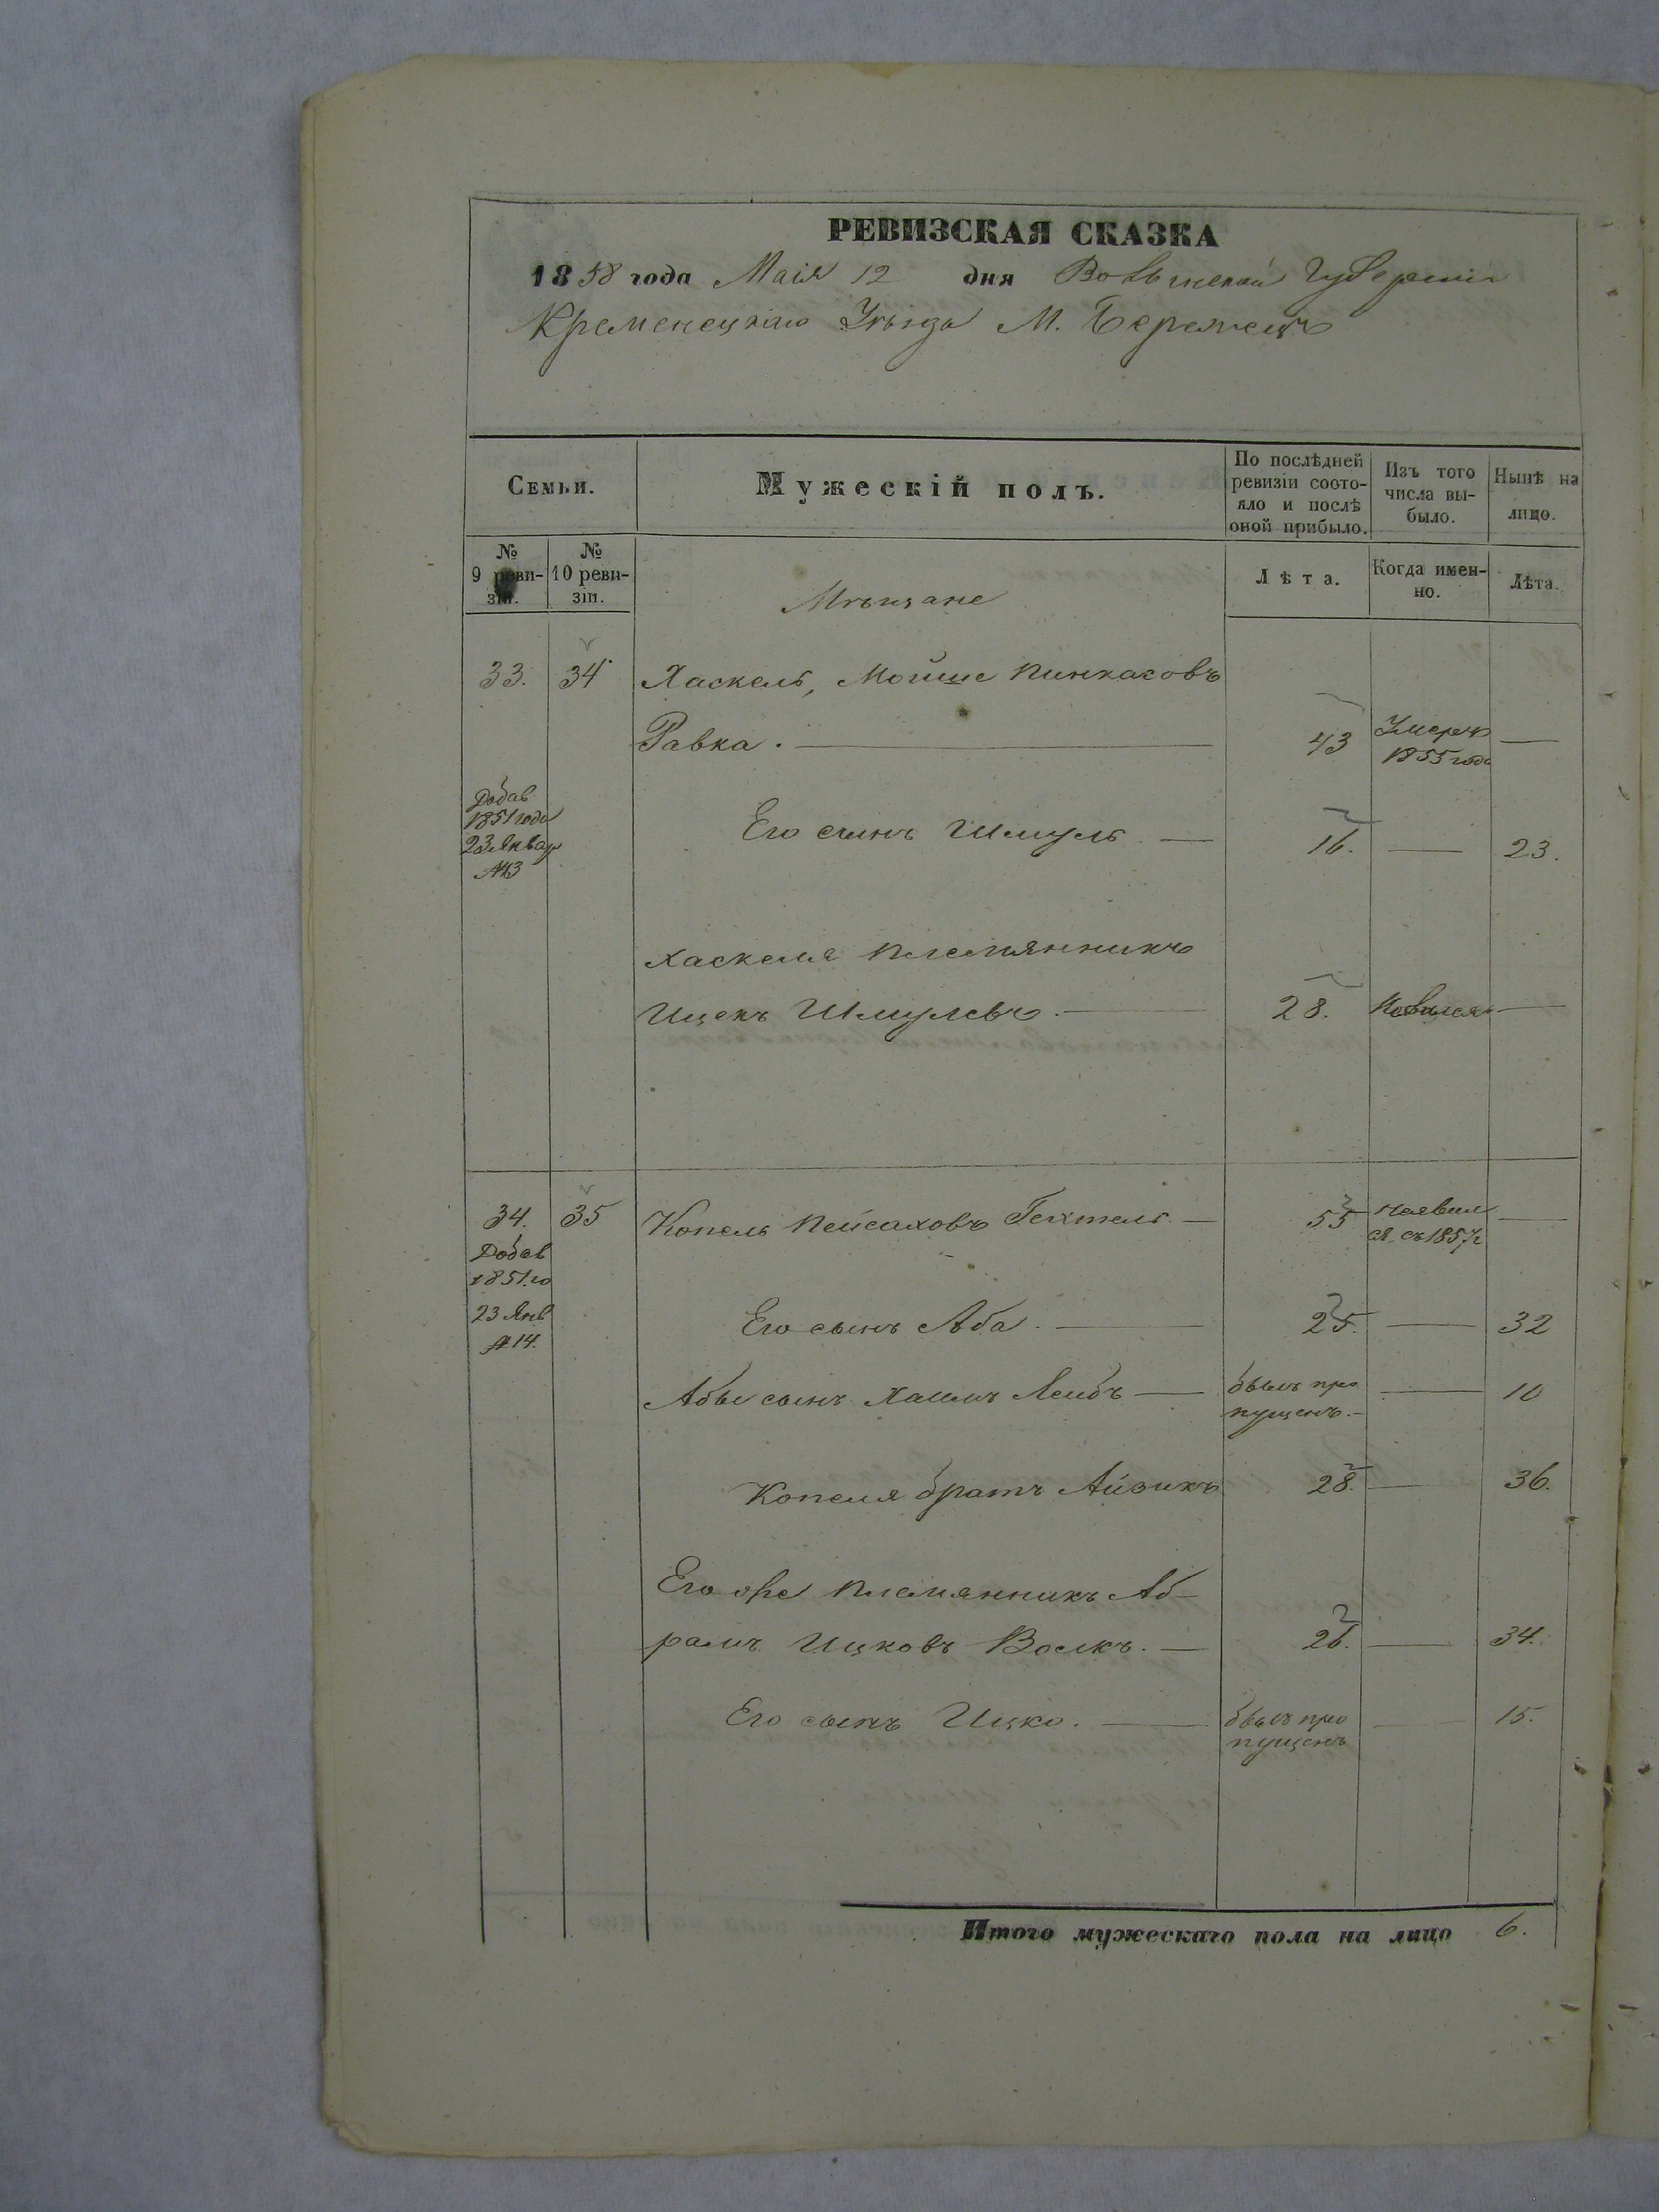 РЕВИЗСКАЯ СКАЗКА
1858 года Маія 12 дня Волынской Губерніи
Кременецкаго Уѣзда М. Бережецъ
Семьи.
Мужескій полъ.
По послѣдней ревизіи состо-яло и послѣ оной прибыло.
Изъ того числа вы-было.
Нынѣ на лицо.
№ 9 реви-зіи.
№ 10 реви-зіи.
Мѣщане
Лѣта.
Когда имен-но.
Лѣта.
33. 34 Хаскель, Мойше Пинкасовъ
Равка. — 43 Умеръ 1855 года —
Добав
1851 года
23 Январ
№13
Его сынъ Шмуль — 16. — 23.
Хаскеля племянникъ
Ицекъ Шмулевъ. — 28. —
34. 35 Копель Пейсаховъ Гехтель — 55 неявил
ся съ 1857 г —
Добав
1851.го
23 Янв
№14.
Его сынъ Аба. — 25. — 32
Абы сынъ Хаимъ Лейбъ — былъ про
пущенъ. — 10
Копеля братъ Айзикъ 28. — 36.
Его же племянникъ Аб-
рамъ Ицковъ Волкъ. — 26. — 34.
Его сынъ Ицко. — былъ про
пущенъ — 15.
Итого мужескаго пола на лицо 6.